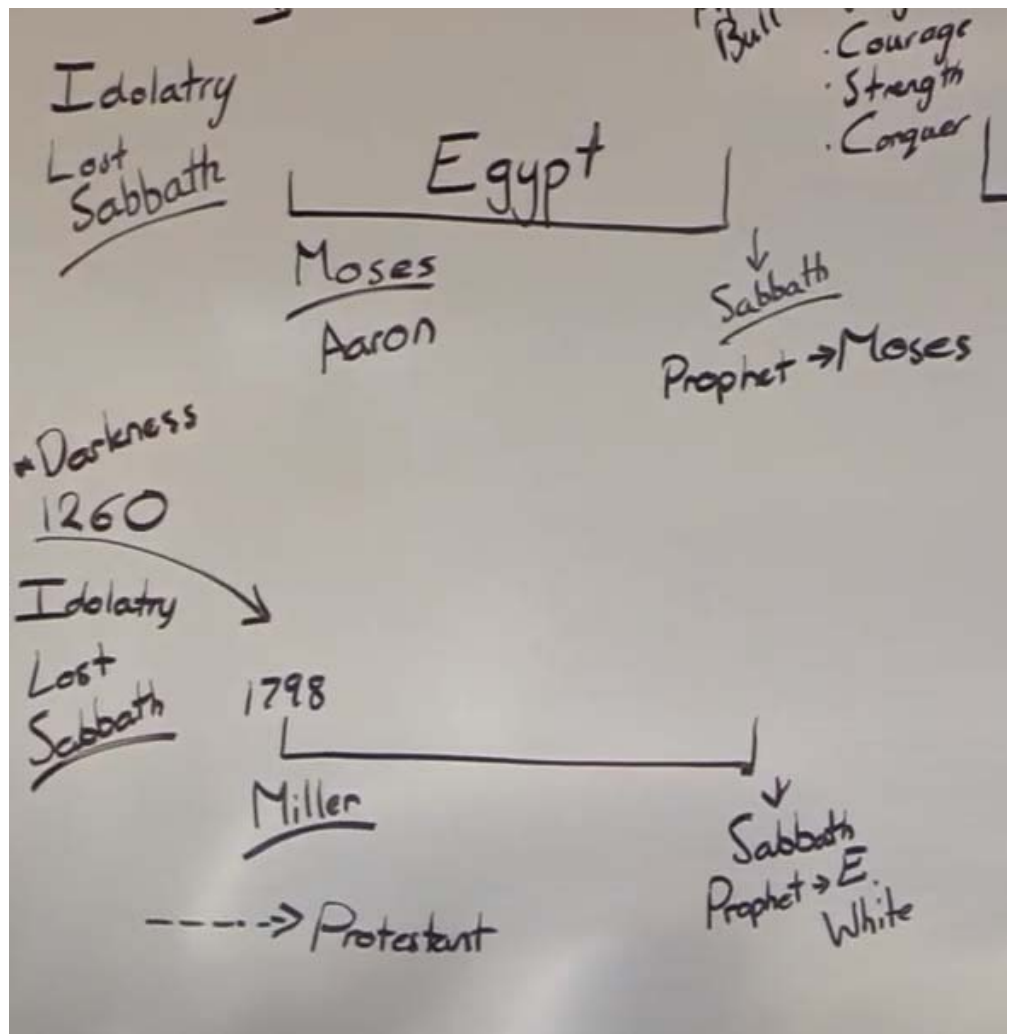 Bull
· Courage
· Strength
· Conquer
Idolatry
Lost
Sabbath
Egypt
Moses
Aaron
Sabbath
Prophet → Moses
* Darkness
1260
Idolatry
Lost
Sabbath
1798
Miller
Sabbath
Prophet → E.
White
----> Protestant